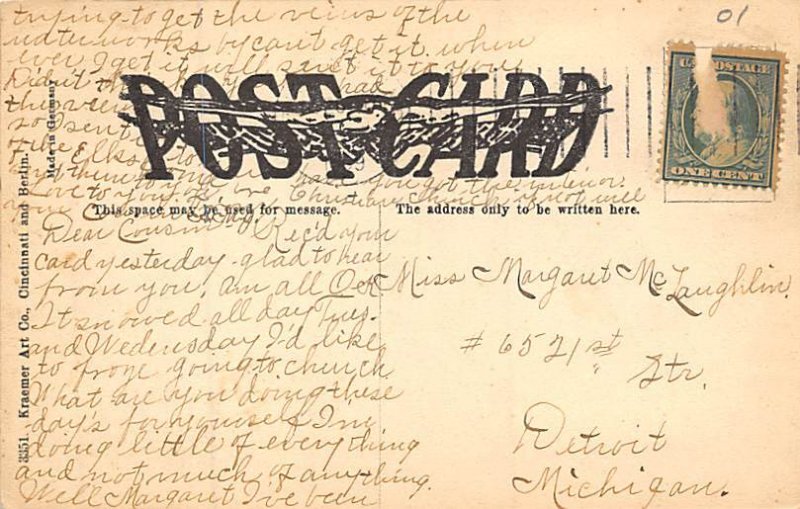 01
trying to get the views of the
waterworks by can't get it when
ever I get it will send it to you.
Didn't the had
the
so I sent
of the Elks to
you got the interior
Love to you Christian Church if not will
your Cousin
POST CARD
U.S. POSTAGE
ONE CENT
This space may be used for message.
The address only to be written here.
3351. Kraemer Art Co., Cincinnati and Berlin.
Made in Germany
Dear Cousin; Rec'd your
card yesterday glad to hear
from you, am all O.K
It snowed all day Tues.
and Wedensday I'd like
to froze going to church
What are you doing these
day's for yourself I'm
doing little of everything
and not much of anything.
Well Margaret I've been
Miss Margaret McLaughlin
# 65 21st
Str.
Detroit
Michigan.